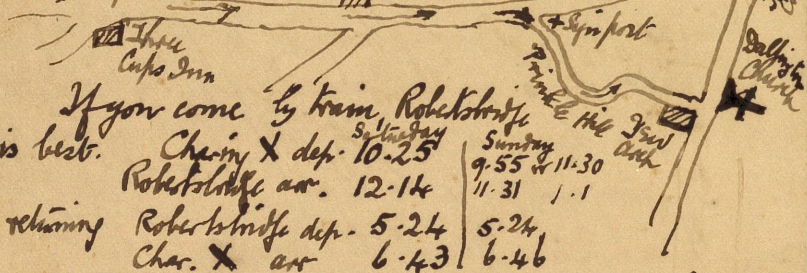 Three
Cups Inn
+ Signpost
Brinkle Hill
Dallington
Church
Yew
Arch
If you come by train, Robertsbridge
is best.
Saturday Sunday
Charing X dep. 10.25 9.55 or 11.30
Robertsbridge arr. 12.14 11.31 1.1
returning Robertsbridge dep. 5.24 5.24
Char. X arr 6.43 6.46